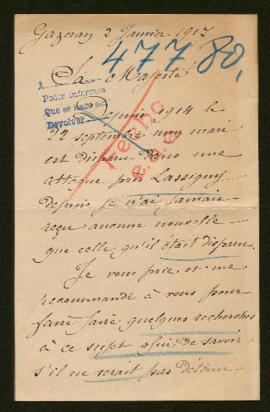 Gazeran 2 Janvier 1917
47780,
Sa Majesté
A
Pedir informes
Que se hace se
Devolver
Depuis 1914 le
22 septembre mon mari
est disparu dans une
attaque près Lassigny
Depuis je n'ai jamais
reçu aucune nouvelle
que celle qu'il était disparu.
Je vous prie et me
recommande à vous pour
faire faire quelques recherches
à ce sujet afin de savoir
s'il ne serait pas détenu